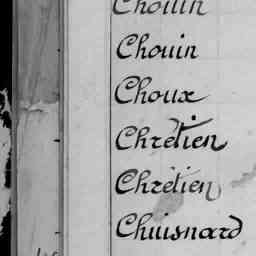 Chouin
Chouin
Choux
Chrétien
Chrétien
Chuisnard